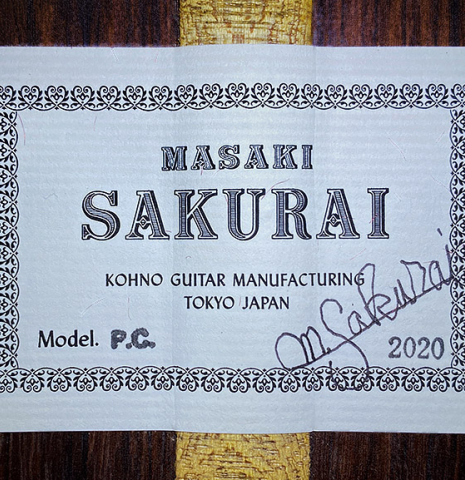 MASAKI
SAKURAI
KOHNO GUITAR MANUFACTURING
TOKYO JAPAN
M. Sakurai
Model. P.C. 2020